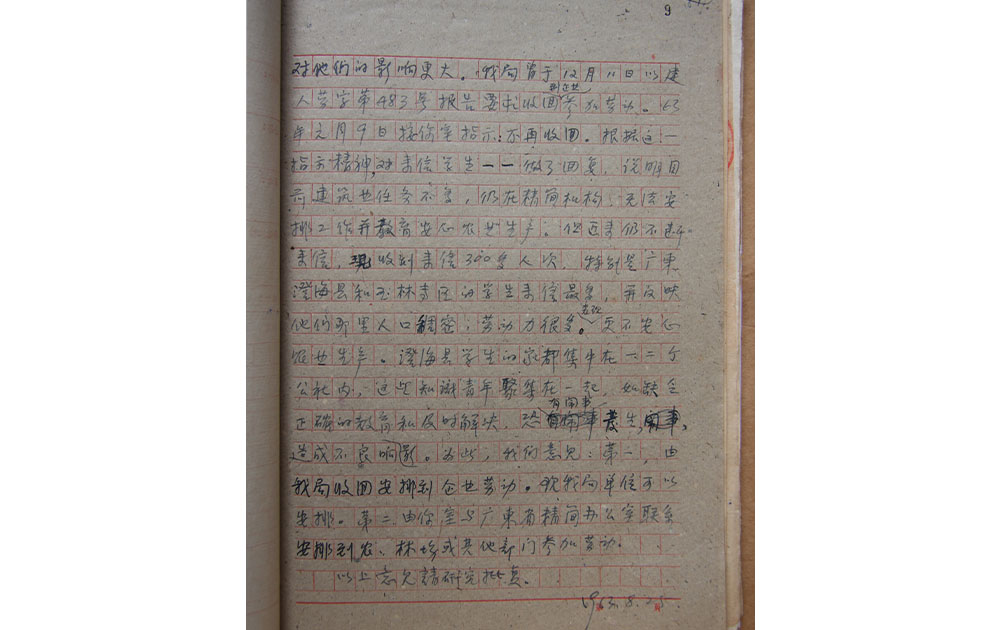 9
对他们的影响更大。我局曾于12月11日以建
人劳字第483号报告要求收回到企业参加劳动。63
年元月9日接你室指示:不再收回。根据这一
指示精神,对来信学生一一做了回复,说明目
前建筑业任务不多,仍在精简机构,无法安
排工作并教育安心农业生产。但近来仍不断
来信,现收到来信300多人次,特别是广东
澄海县和玉林专区的学生来信最多,并反映
他们那里人口稠密,劳动力很多。更不安心
农业生产。澄海县学生的家都集中在一二个
公社内,这些知识青年聚集在一起,如缺乏
正确的教育和及时解决,恐有闹事发生,
造成不良响影。为此,我们意见:第一,由
我局收回安排到企业劳动。我局单位可以
安排。第二由你室与广东省精简办公室联系
安排到农、林场或其他部门参加劳动。
以上意见請研究批复。
1963.8.25